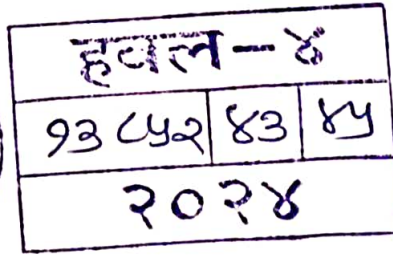 हवल-४
१३८५२ ४३ ४५
२०२४